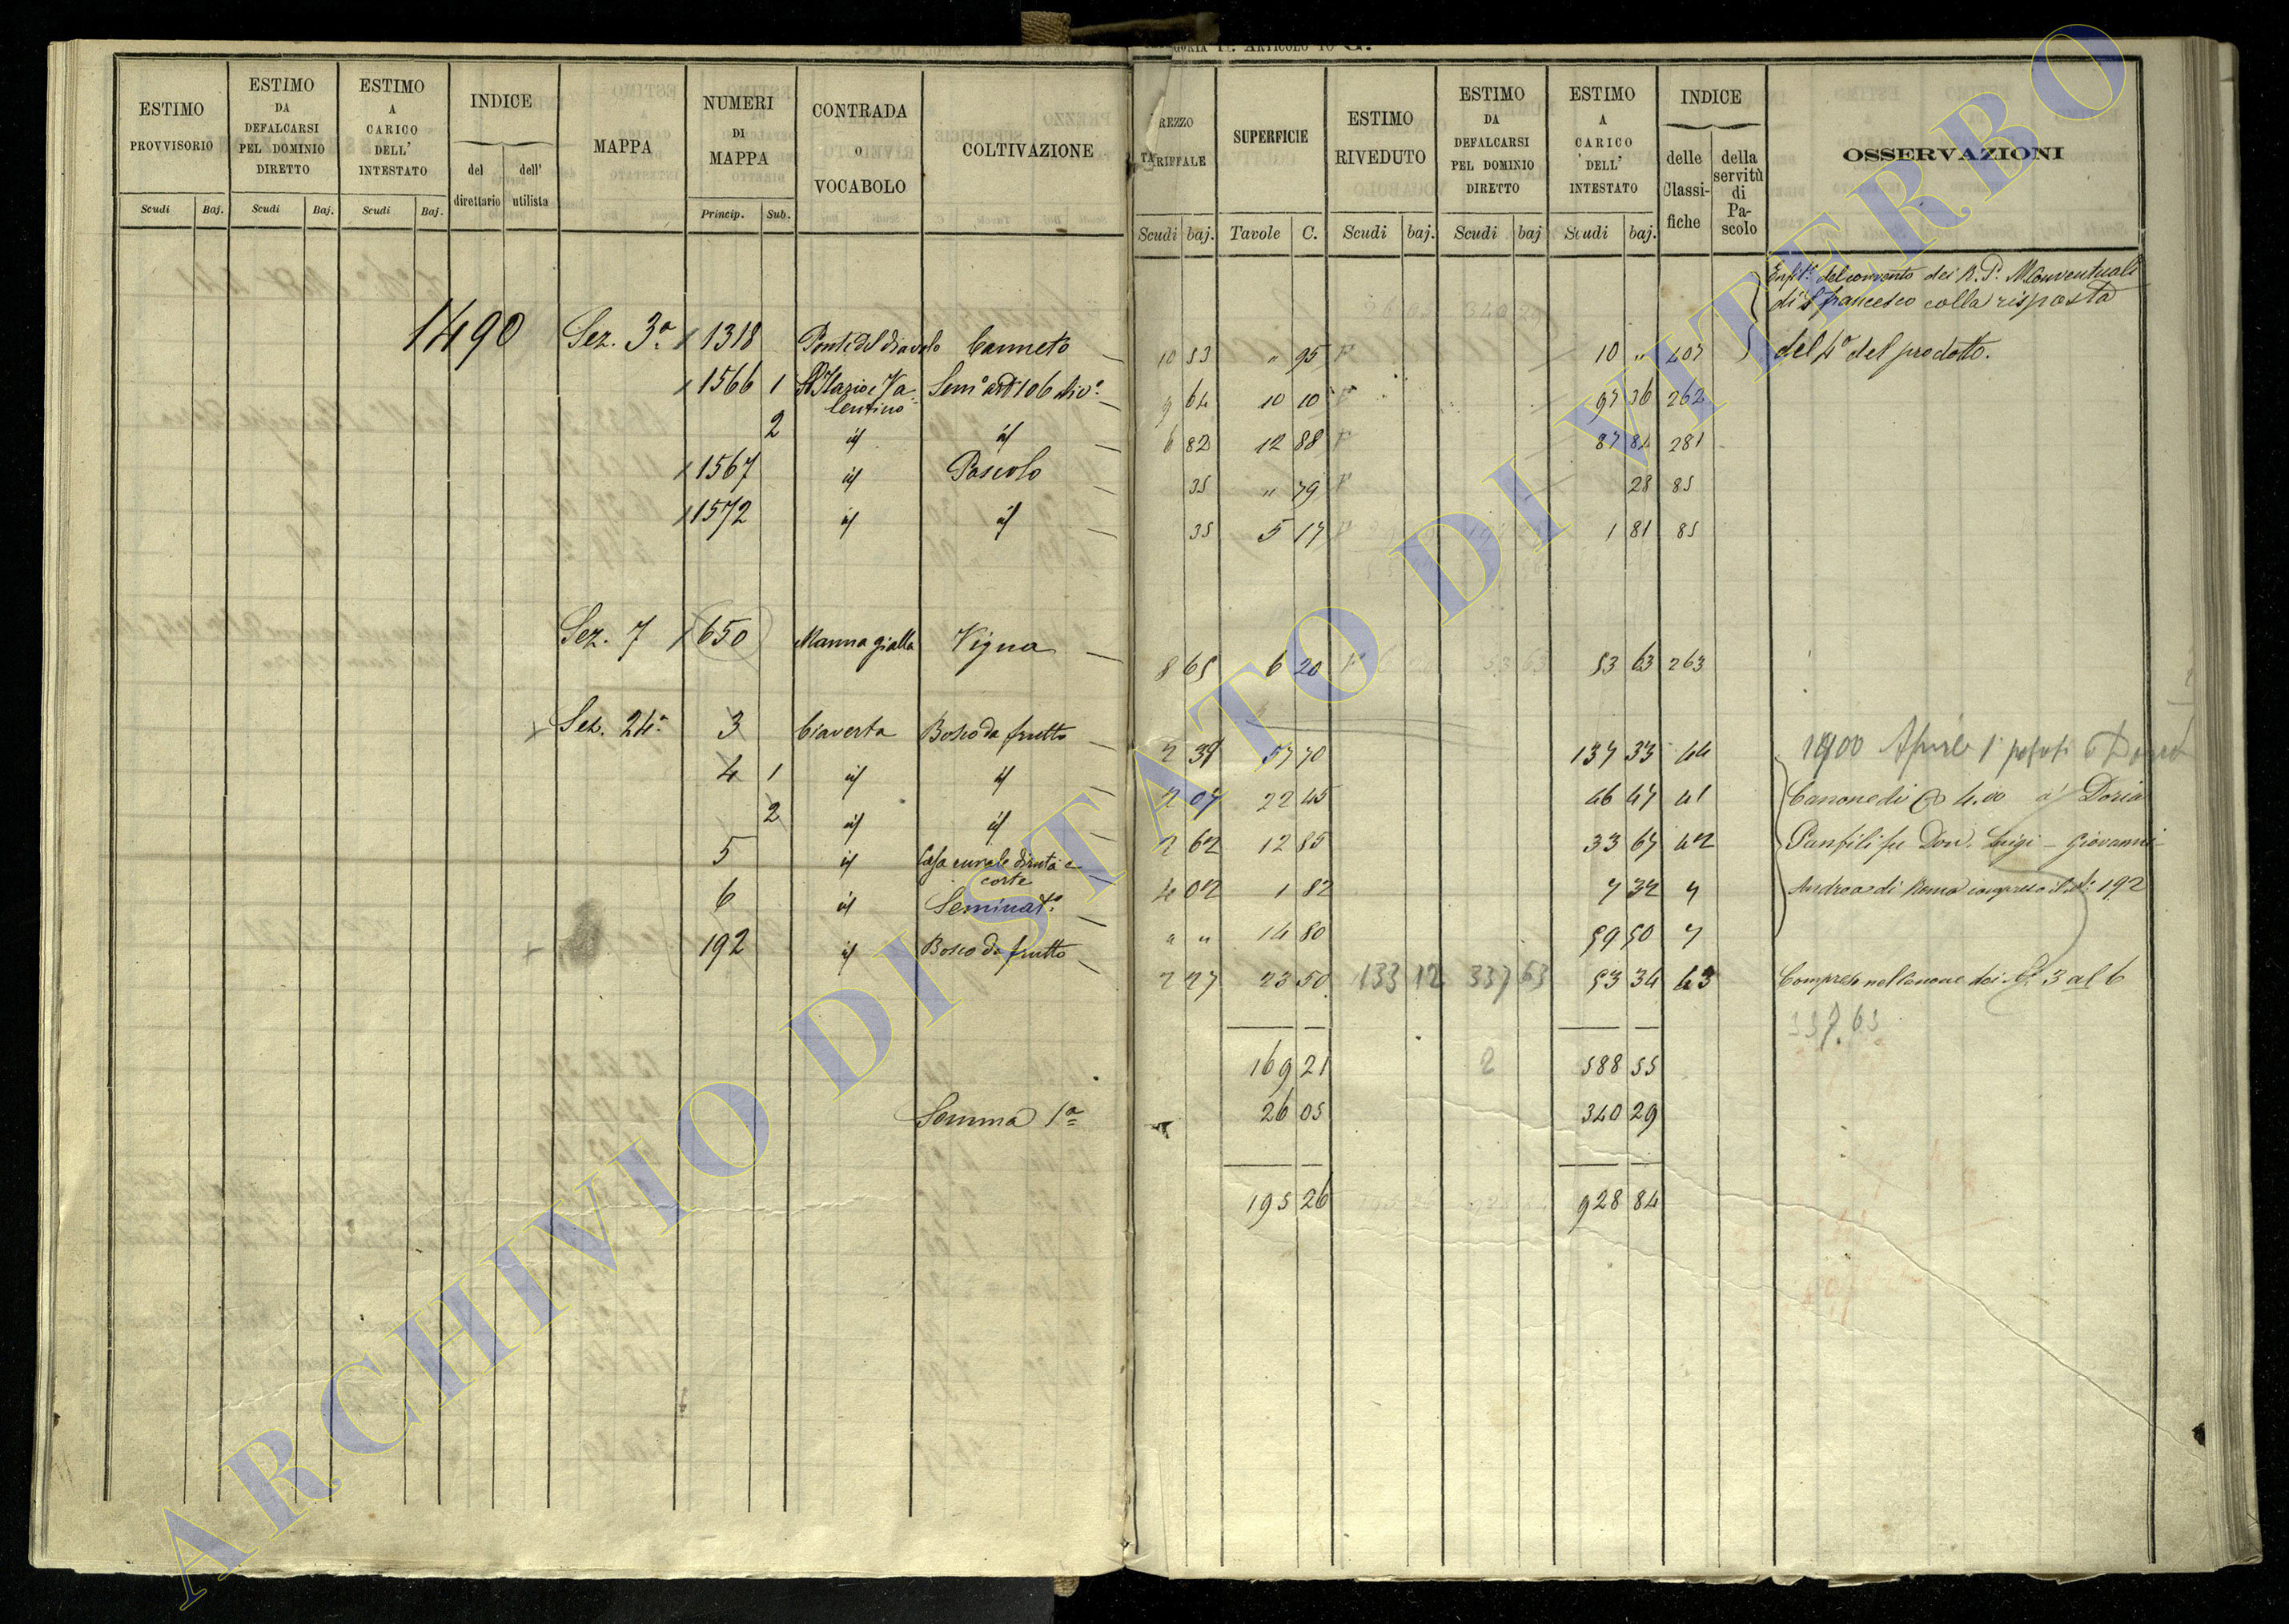 ESTIMO PROVVISORIO
ESTIMO DA DEFALCARSI PEL DOMINIO DIRETTO
ESTIMO A CARICO DELL' INTESTATO
INDICE
del direttario
dell' utilista
MAPPA
NUMERI DI MAPPA
CONTRADA O VOCABOLO
COLTIVAZIONE
Scudi Baj. Scudi Baj. Scudi Baj. Princip. Sub.
ARTICOLO 10 G.
TARIFFALE
SUPERFICIE
ESTIMO RIVEDUTO
ESTIMO DA DEFALCARSI PEL DOMINIO DIRETTO
ESTIMO A CARICO DELL' INTESTATO
INDICE
delle Classifiche
della servitù di Pascolo
OSSERVAZIONI
Scudi baj. Tavole C. Scudi baj. Scudi baj Scudi baj.
del convento dei R. P.
di S. Francesco colla risposta
1490 Sez. 3a 1318 Ponte del diavolo Canneto 10 53 " 95 10 " 407 del 4o del prodotto.
1566 1 S. Ilario e Valentino 9 64 10 10 97 36 262
2 id id 6 82 12 88 87 84 281
1567 id Pascolo 35 " 79 28 85
1572 id id 35 5 17 1 81 85
Sez. 7 650 Manna gialla Vigna 8 65 6 20 53 63 263
Sez. 24a 3 Ciaverta Bosco da frutto 2 38 57 70 137 33 44 1900 Aprile 1
4 1 id id 2 07 22 45 46 47 41 Canone di 4.00 a Doria
2 id id 2 62 12 85 33 67 42 Panfili fu Don. Luigi - Giovanni -
5 id Casa rurale diruta e corte 4 02 1 82 7 32 7 Andrea di Roma compreso il No 192
6 id Seminato " " 14 80 59 50 7
192 id Bosco da frutto 2 27 23 50 133 12 337 63 53 34 43 Compreso nel Canone dei Ni 3 al 6
337.63
169 21 2 588 55
Somma 1a 26 05 340 29
195 26 928 84
ARCHIVIO DI STATO DI VITERBO